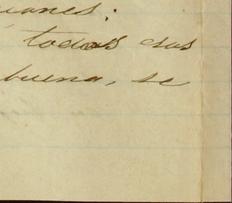 iones:
todas sus
buena, se